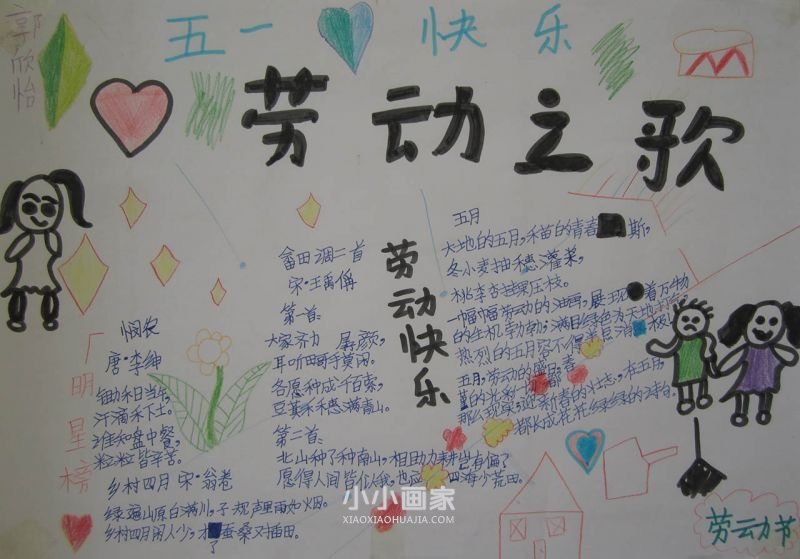 郭欣怡
五一 快乐
劳动之歌
五月
大地的五月,禾苗的青春 斯,
冬小麦抽穗灌浆,
桃李杏进果压枝。
一幅幅劳动的油画,展现 着万物
的生机勃勃,满目绿色为大地打
热烈的五月容不得半点消 极
五月,劳动的盛日,
畲田调二首
宋·王禹偁
第一首:
大家齐力 孱颜,
耳听田 手莫闲。
各愿种成千百索,
豆萁禾穗满青山。
第二首:
北山种了种南山,相助力耕岂有偏?
愿得人间皆似我,也应 四海少荒田。
劳动快乐
悯农
唐·李绅
锄禾日当午,
汗滴禾下土。
谁知盘中餐,
粒粒皆辛苦。
乡村四月 宋·翁卷
绿遍山原白满川,子规声里雨如烟。
乡村四月闲人少,才 蚕桑又插田。
了
明星榜
小小画家
XIAOXIAOHUAJIA.COM
劳动节